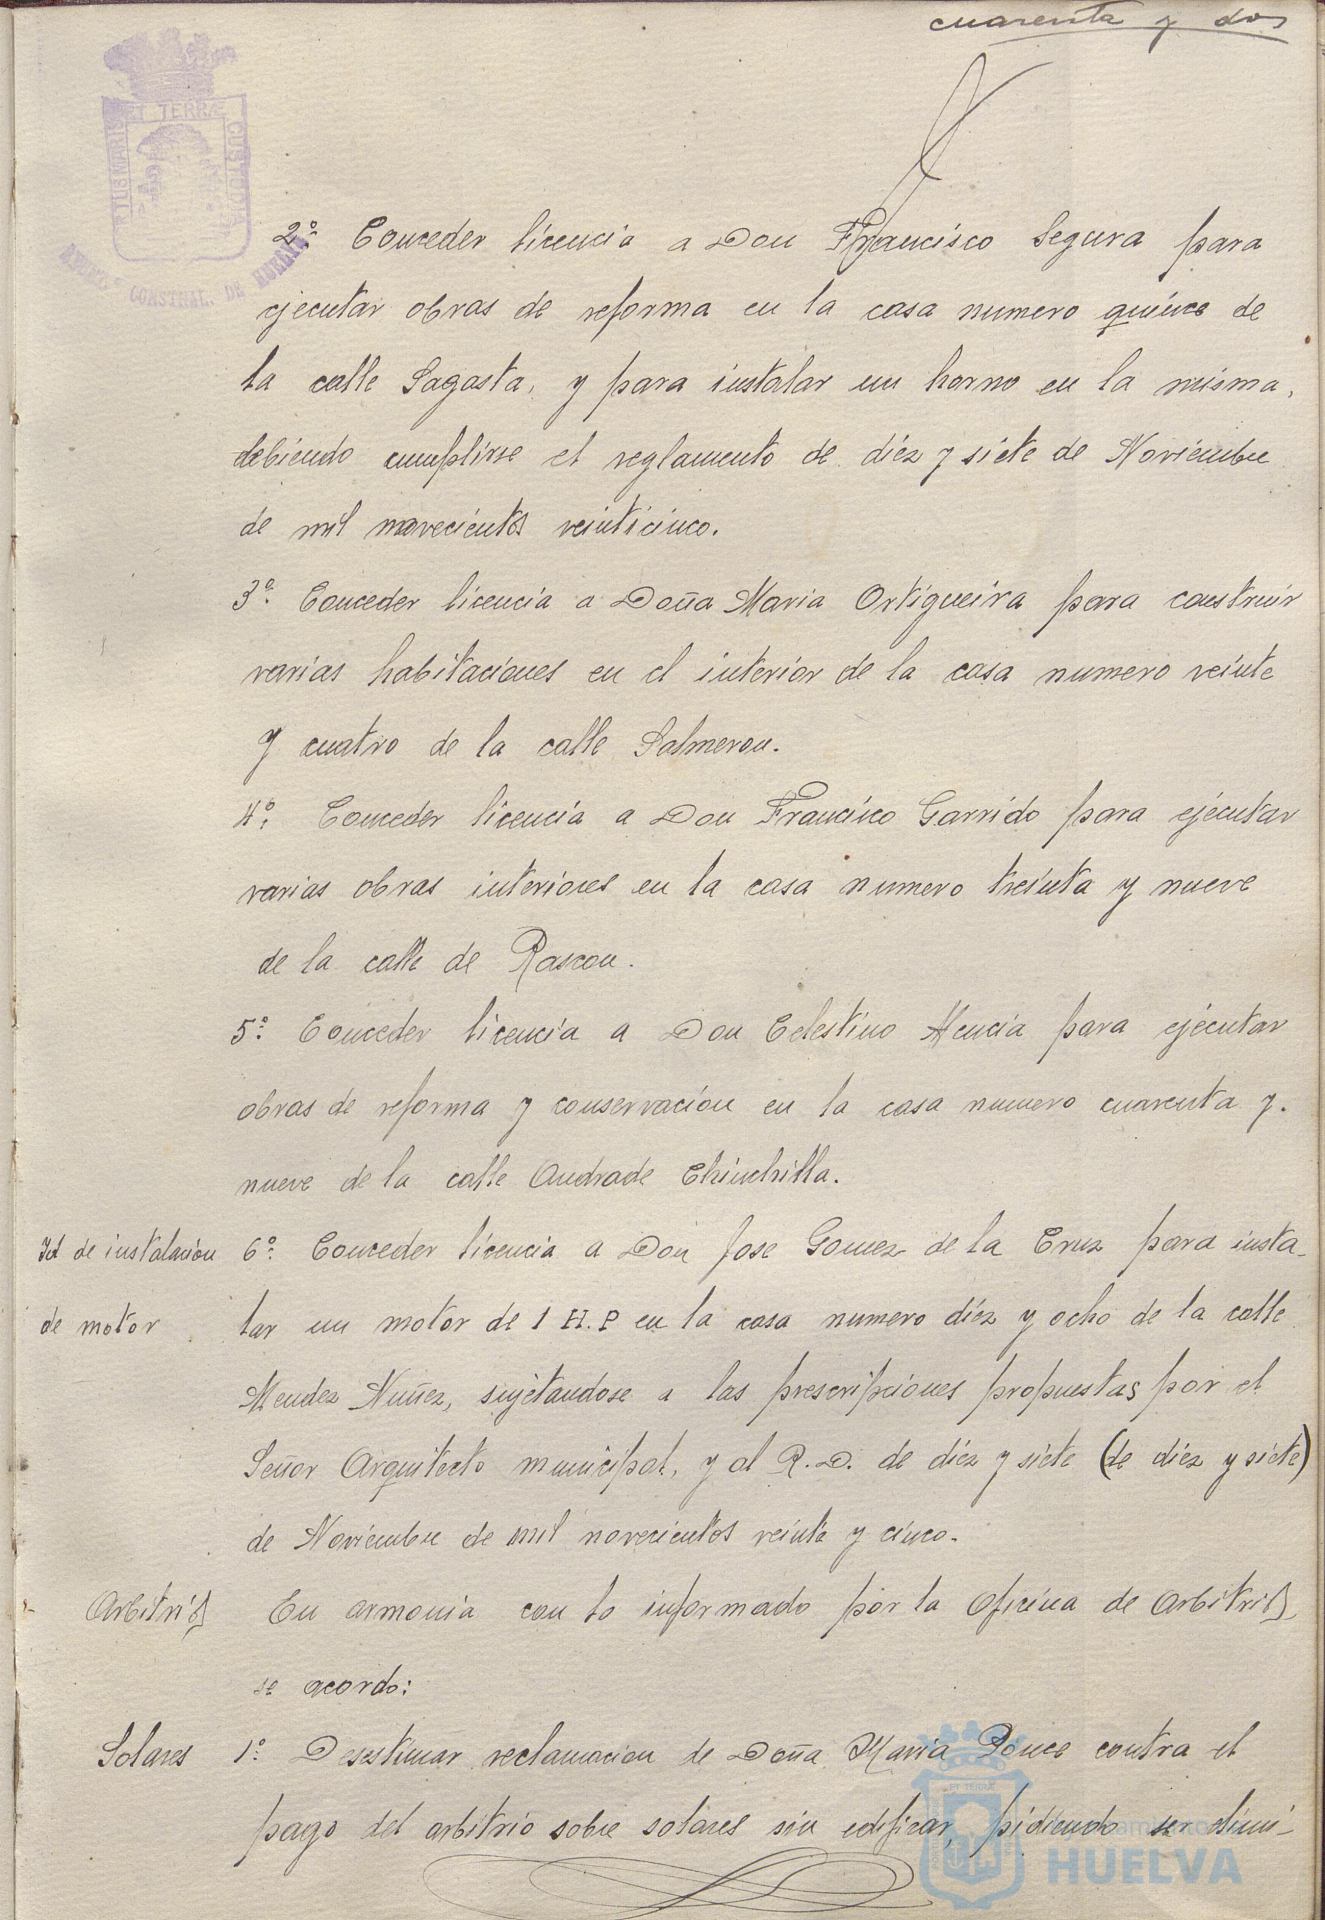 cuarenta y dos
PORTUS MARIS ET TERRÆ CUSTODIA
AYUNT.º CONSTNAL. DE HUELVA
2º: Conceder licencia a Don Francisco Segura para
ejecutar obras de reforma en la casa numero quince de
la calle Sagasta, y para instalar un horno en la misma,
debiendo cumplirse el reglamento de diez y siete de Noviembre
de mil novecientos veinticinco.
3º: Conceder licencia a Doña Maria Ortigueira para construir
varias habitaciones en el interior de la casa numero veinte
y cuatro de la calle Salmeron.
4º: Conceder licencia a Don Francisco Garrido para ejecutar
varias obras interiores en la casa numero treinta y nueve
de la calle de Rascon.
5º: Conceder licencia a Don Celestino Mencia para ejecutar
obras de reforma y conservacion en la casa numero cuarenta y.
nueve de la calle Andrade Chinchilla.
Id de instalacion
de motor
6º: Conceder licencia a Don Jose Gomez de la Cruz para insta-
lar un motor de 1 H.P en la casa numero diez y ocho de la calle
Mendez Nuñez, sujetandose a las prescripciones propuestas por el
Señor Arquitecto municipal, y al R.D. de diez y siete (de diez y siete)
de Noviembre de mil novecientos veinte y cinco.
Arbitrios
En armonia con lo informado por la Oficina de Arbitrios
se acordo:
Solares
1º: Desestimar reclamacion de Doña Maria Ponce contra el
pago del arbitrio sobre solares sin edificar, pidiendo ser elimi-
ET TERRÆ
HUELVA